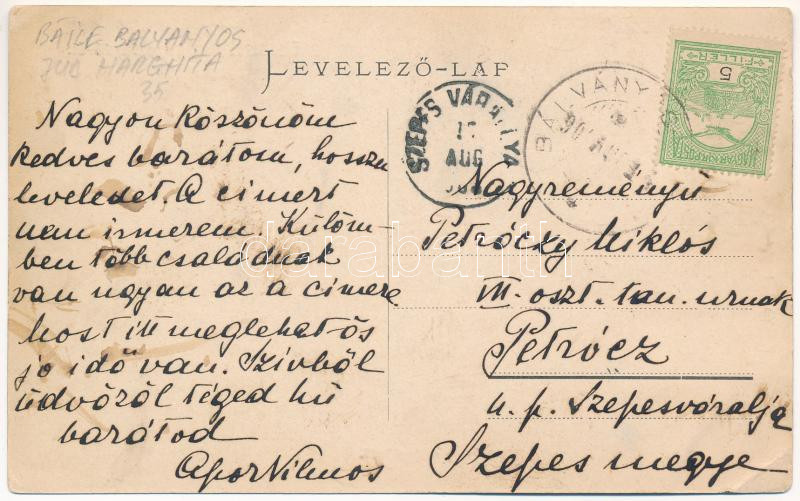 BAILE BALVANYOS
JUD HARGHITA
35
LEVELEZŐ-LAP
Nagyon köszönöm
kedves barátom, hosszu
leveledet. A cimert
nem ismerem. Külöm-
ben több családnak
van ugyan az a cimere
host itt meglehetős
jo idő van. Szívből
üdvözöl téged hű
barátod
Apor Vilmos
SZEPES VÁRALLYA
AUG
BÁLVÁNYOS
MAGYAR KIR. POSTA
5
FILLÉR
Nagyreményü
Petróczy Miklós
VII. oszt. tan. urnak
Petrócz
u. p. Szepesváralja
Szepes megye
darabanth